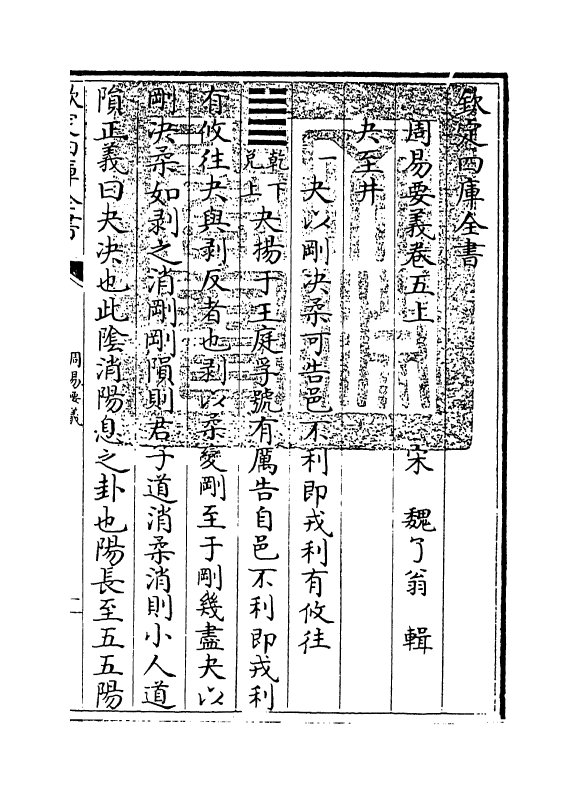 欽定四庫全書
周易要義卷五上
宋 魏了翁 輯
夬至井
一夬以剛決柔可告邑不利即戎利有攸往
乾下兑上夬揚于王庭孚號有厲告自邑不利即戎利
有攸往夬與剥反者也剥以柔變剛至于剛幾盡夬以
剛决柔如剥之消剛剛隕則君子道消柔消則小人道
隕正義曰夬决也此陰消陽息之卦也陽長至五五陽
欽定四庫全書
周易要義